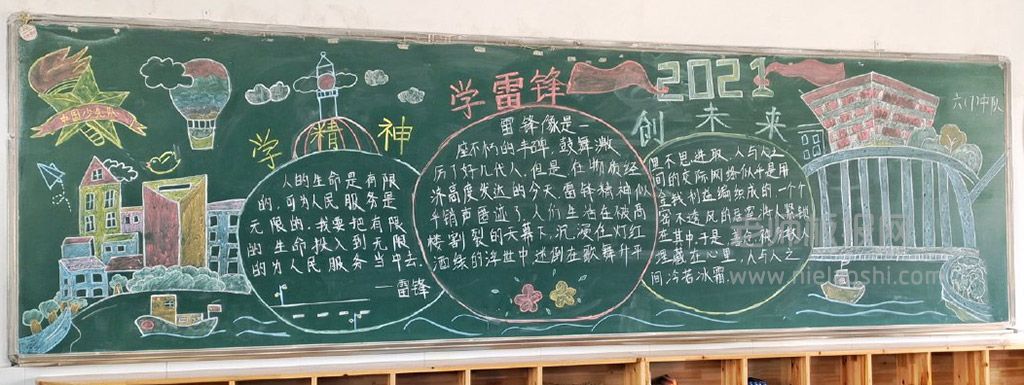 中国少先队
学雷锋
2021
学精神
创未来
六(1)中队
人的生命是有限
的,可为人民服务是
无限的,我要把有限
的生命投入到无限
的为人民服务当中去.
—雷锋
雷锋像是一
座不朽的丰碑,鼓舞激
厉了好几代人,但是,在物质经
济高度发达的今天,雷锋精神似
乎销声匿迹了,人们生活在被高
楼割裂的天幕下,沉湎在灯红
酒绿的浮世中,迷倒在歌舞升平
但不思进取,人与人之
间的交际网络似乎是用
金钱利益编织成的一个个
密不透风的
将人紧锁
在其中,于是,善
被人
埋藏在心里,人与人之
间冷若冰霜.
www.nielaoshi.com